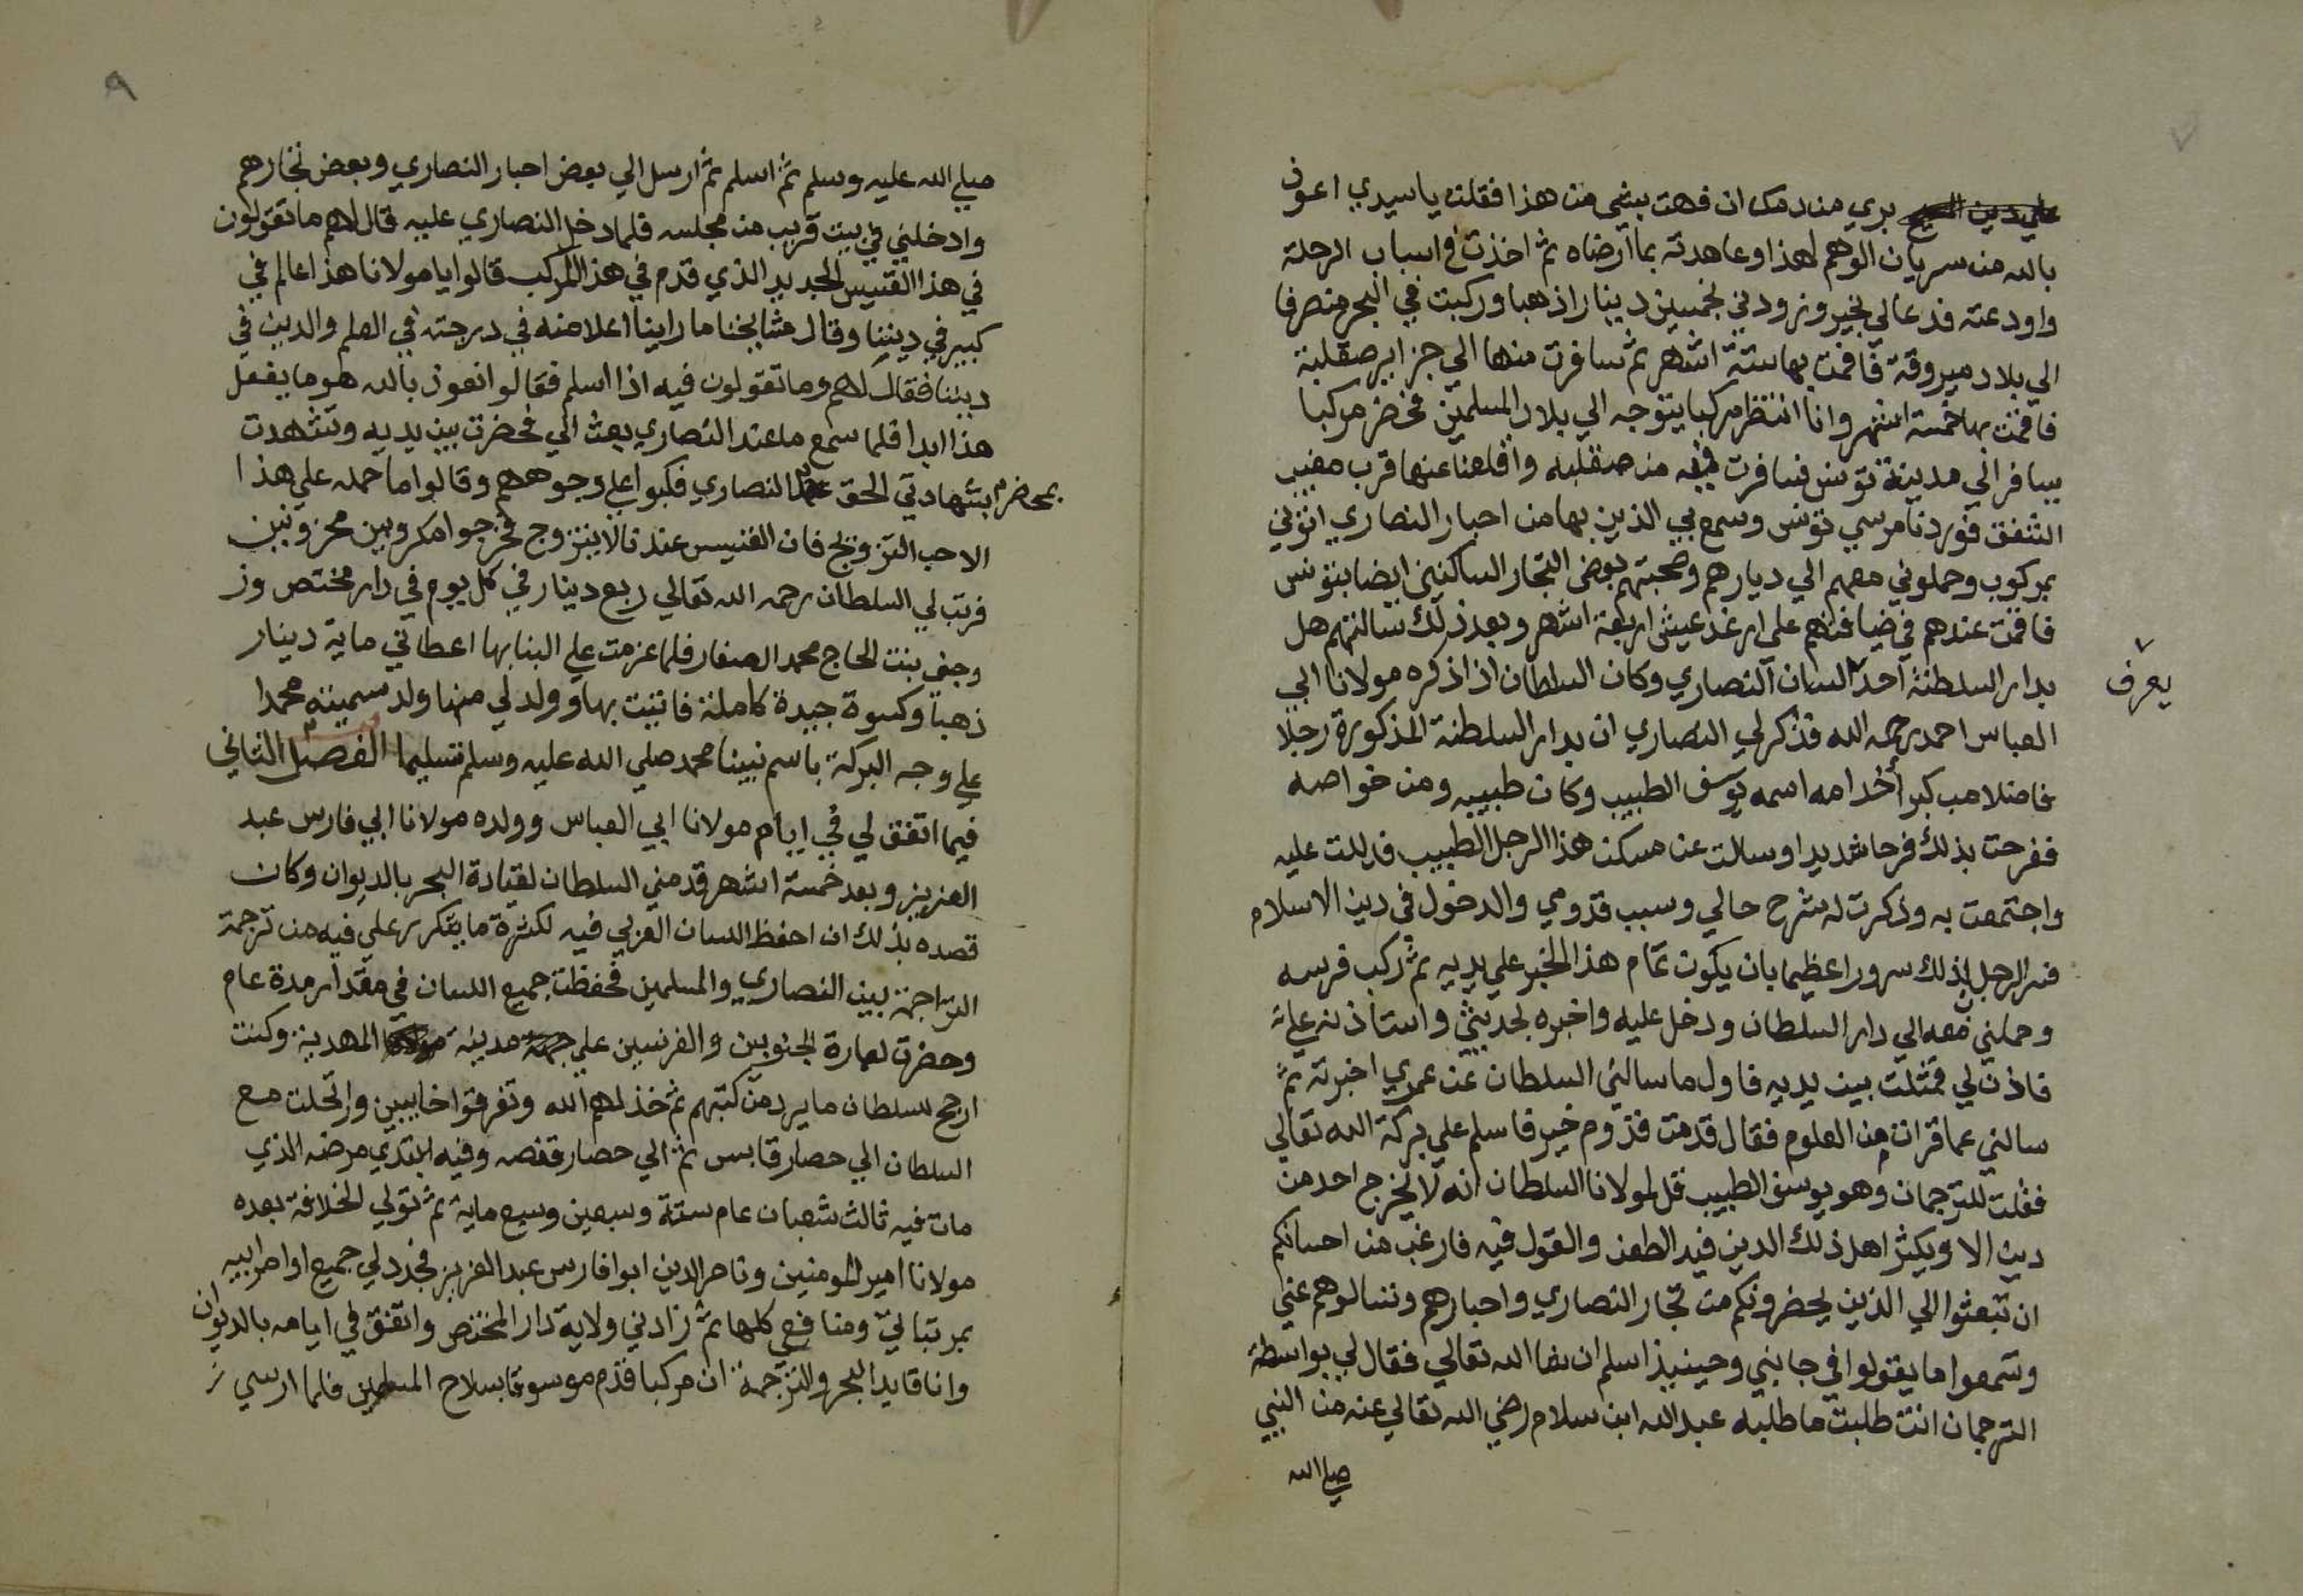 ٧
بري من دمك ان فهت بشي من هذا فقلت يا سيدي اعوذ
بالله من سريان الوهم لهذا وعاهدته بما ارضاه ثم اخذت في اسباب الرحلة
واودعته فدعا لي بخير وزودني بخمسين دينارا ذهبا وركبت في البحر منصرفا
الي بلاد ميروقة فاقمت بها ستة اشهر ثم سافرت منها الي جزاير صقلية
فاقمت بها خمسة اشهر وانا انتظر مركبا يتوجه الي بلاد المسلمين فحضر مركبا
يسافر الي مدينة تونس فسافرت فيه من صقليه واقلعنا عنها قرب مغيب
الشفق فوردنا مرسي تونس وسمع بي الذين بها من احبار النصاري اتوني
بمركوب وحملوني معهم الي ديارهم وصحبتهم بعض التجار الساكنين ايضا بتونس
فاقمت عندهم في ضيافتهم علي ارغد عيش اربعة اشهر وبعد ذلك سالتهم هل
بدار السلطنة احد السان النصاري وكان السلطان اذ اذكره مولانا ابي
يعرف
العباس احمد رحمه الله فذكر لي النصاري ان بدار السلطنة المذكورة رجلا
فاضلا من كبرا خدامه اسمه يوسف الطبيب وكان طبيبه ومن خواصه
ففرحت بذلك فرحا شديدا وسالت عن مسكن هذا الرجل الطبيب فدللت عليه
واجتمعت به وذكرت له شرح حالي وسبب قدومي والدخول في دين الاسلام
فسر الرجل بذلك سرورا عظيما بان يكون تمام هذا الخبر علي يديه ثم ركب فرسه
وحملني معه الي دار السلطان ودخل عليه واخبره بحديثي واستاذنه علي
فاذن لي فمثلت بين يديه فاول ما سالني السلطان عن عمري اخبرته ثم
سالني عما قرات من العلوم فقال قدمت قدوم خير فاسلم علي بركة الله تعالي
فقلت للترجمان وهو يوسف الطبيب قل لمولانا السلطان انه لا يخرج احد من
دين الا ويكثر اهل ذلك الدين فيه الطعن والقول فيه فارغب من احسانكم
ان تبعثوا الي الذين يحضرونكم من تجار النصاري واحبارهم وتسالوهم عني
وتسمعوا ما يقولوا في جانبي وحينيذ اسلم ان شا الله تعالي فقال لي بواسطة
الترجمان انت طلبت ما طلبه عبد الله ابن سلام رضي الله تعالي عنه من النبي
صلي الله
٩
صلي الله عليه وسلم ثم اسلم ثم ارسل الي بعض احبار النصاري وبعض تجارهم
وادخلني في بيت قريب من مجلسه فلما دخل النصاري عليه قال لهم ما تقولون
في هذا القسيس الجديد الذي قدم في هذا المركب قالوا يا مولانا هذا عالم في
كبير في ديننا وقال مشايخنا ما راينا اعلا منه في درجته في العلم والدين في
ديننا فقال لهم وما تقولون فيه اذا اسلم فقالوا نعوذ بالله هو ما يفعل
هذا ابدا فلما سمع ما عند النصاري بعث الي فحضرت بين يديه وتشهدت
بشهادتي الحق بمحضر النصاري فكبوا علي وجوههم وقالوا ما حمله علي هذا
الا حب التزويج فان القسيس عندنا لا يتزوج فخرجوا مكروبين محزونين
فرتب لي السلطان رحمه الله تعالي ربع دينار في كل يوم في دار مختص وز
وجني بنت الحاج محمد الصفار فلما عزمت علي البنا بها اعطاني ماية دينار
ذهبا وكسوة جيدة كاملة فابتنيت بها وولد لي منها ولد سميته محمدا
علي وجه البركة باسم نبينا محمد صلي الله عليه وسلم تسليما الفصل الثاني
فيما اتفق لي في ايام مولانا ابي العباس وولده مولانا ابي فارس عبد
العزيز وبعد خمسة اشهر قدمني السلطان لقيادة البحر بالديوان وكان
قصده بذلك ان احفظ السان العزبي فيه لكثرة ما يتكرر علي فيه من ترجمة
التراجمة بين النصاري والمسلمين فحفظت جميع اللسان في مقدار مدة عام
وحضرت لعمارة الجنويين والفرنسين علي مدينة المهدية وكنت
ارجح للسلطان ما يرد من كتبهم ثم خذلهم الله وتفرقوا خايبين وارتحلت مع
السلطان الي حصار قابس ثم الي حصار قفصه وفيه ابتدي مرضه الذي
مات فيه ثالث شعبان عام ستة وسبعين وسبع ماية ثم تولي الخلافة بعده
مولانا امير المومنين وناصر الدين ابوا فارس عبد العزيز فجدد لي جميع اوامر ابيه
بمرتباتي ومنافعي كلها ثم زادني ولاية دار المختص واتفق في ايامه بالديوان
وانا قايد البحر والترجمة ان مركبا قدم موسوقا بسلاح المسلمين فلما ارسي